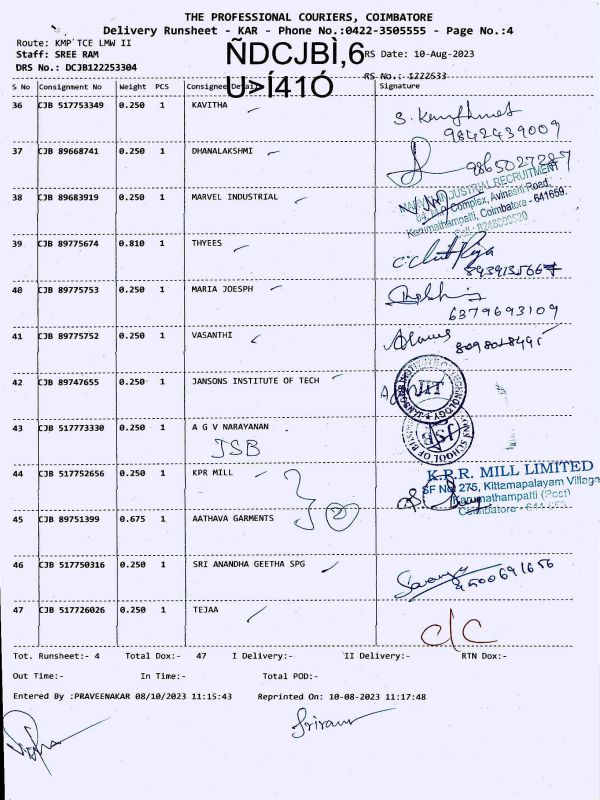 THE PROFESSIONAL COURIERS, COIMBATORE
Delivery Runsheet - KAR - Phone No.:0422-3505555 - Page No.:4
Route: KMP TCE LMW II
Staff: SREE RAM
DRS No.: DCJB122253304
ÑDCJBÌ,6
U>Í41Ó
RS Date: 10-Aug-2023
RS No.: 1222533
S No Consignment No Weight PCS Consignee Details Signature
36 CJB 517753349 0.250 1 KAVITHA
9842439009
37 CJB 89668741 0.250 1 DHANALAKSHMI
9865027287
38 CJB 89683919 0.250 1 MARVEL INDUSTRIAL
INDUSTRIAL RECRUITMENT
Complex, Avinashi Road,
Karumathampatti, Coimbatore - 641659.
39 CJB 89775674 0.810 1 THYEES
8939135667
40 CJB 89775753 0.250 1 MARIA JOESPH
6379693109
41 CJB 89775752 0.250 1 VASANTHI
42 CJB 89747655 0.250 1 JANSONS INSTITUTE OF TECH
JIT
43 CJB 517773330 0.250 1 A G V NARAYANAN
JSB
JSB
44 CJB 517752656 0.250 1 KPR MILL
K.P.R. MILL LIMITED
SF No. 275, Kittampalayam Village
Karumathampatti (Post)
Coimbatore
45 CJB 89751399 0.675 1 AATHAVA GARMENTS
2
46 CJB 517750316 0.250 1 SRI ANANDHA GEETHA SPG
9500691656
47 CJB 517726026 0.250 1 TEJAA
c/c
Tot. Runsheet:- 4 Total Dox:- 47 I Delivery:- II Delivery:- RTN Dox:-
Out Time:- In Time:- Total POD:-
Entered By :PRAVEENAKAR 08/10/2023 11:15:43 Reprinted On: 10-08-2023 11:17:48